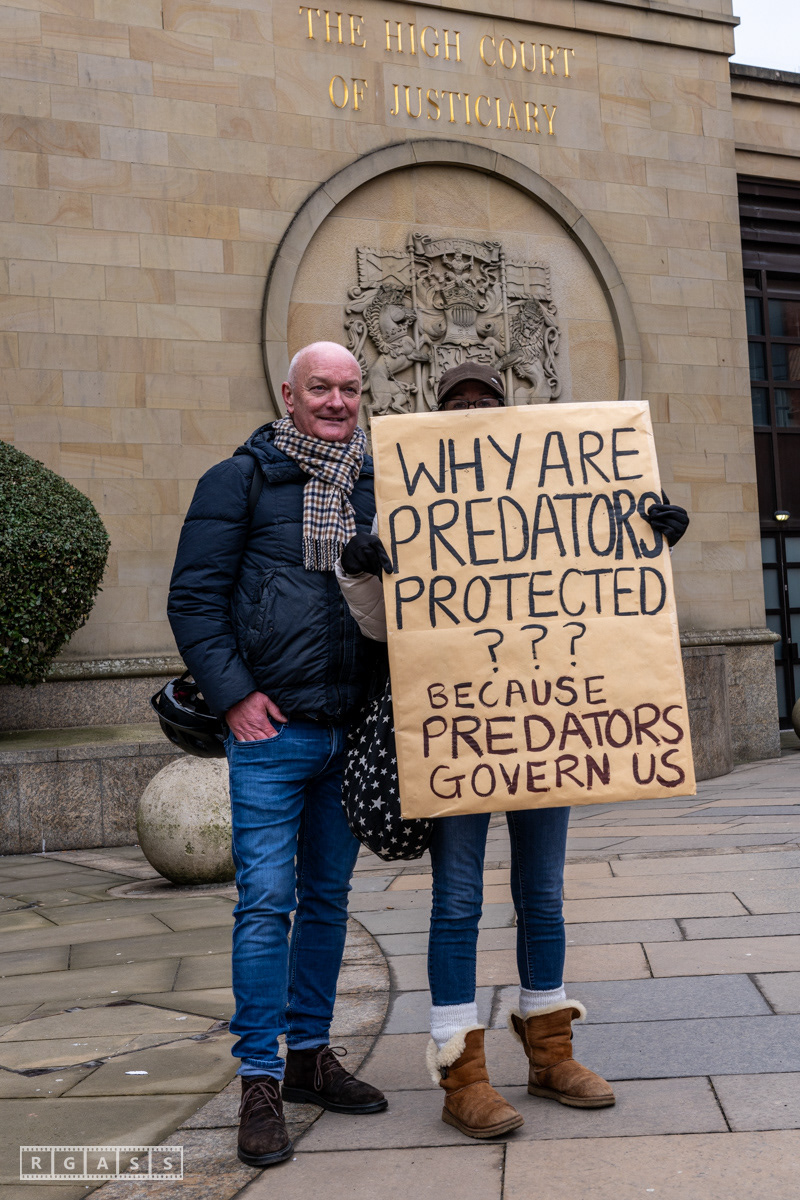 THE HIGH COURT
OF JUSTICIARY
WHY ARE
PREDATORS
PROTECTED
? ? ?
BECAUSE
PREDATORS
GOVERN US
RGASS